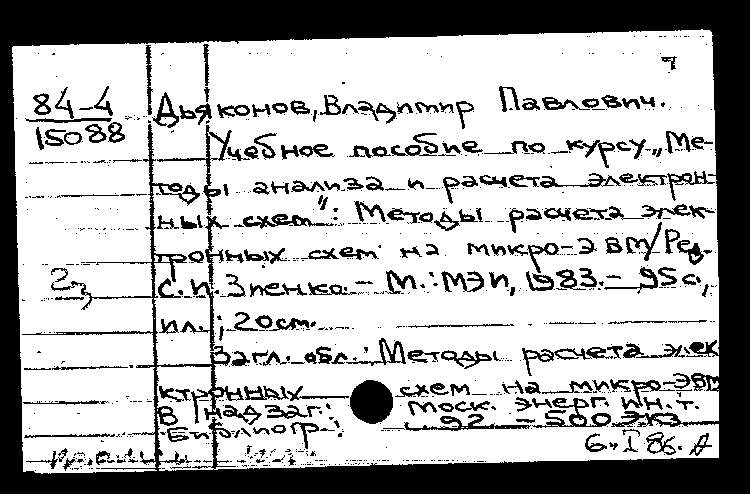 7
84-4
15088
Дьяконов, Владимир Павлович.
Учебное пособие по курсу „Ме-
тоды анализа и расчета электрон-
ных схем": Методы расчета элек-
тронных схем на микро-ЭВМ/Ред.
2з
С.П. Зпенко. – М.: МЭИ, 1983. – 95 с.,
ил.; 20см.
Загл. обл.: Методы расчета элек
ктронных схем на микро-ЭВМ
В надзаг: Моск. энерг. ин. т.
Библиогр.: с. 92 – 500 экз
6.I 86. А